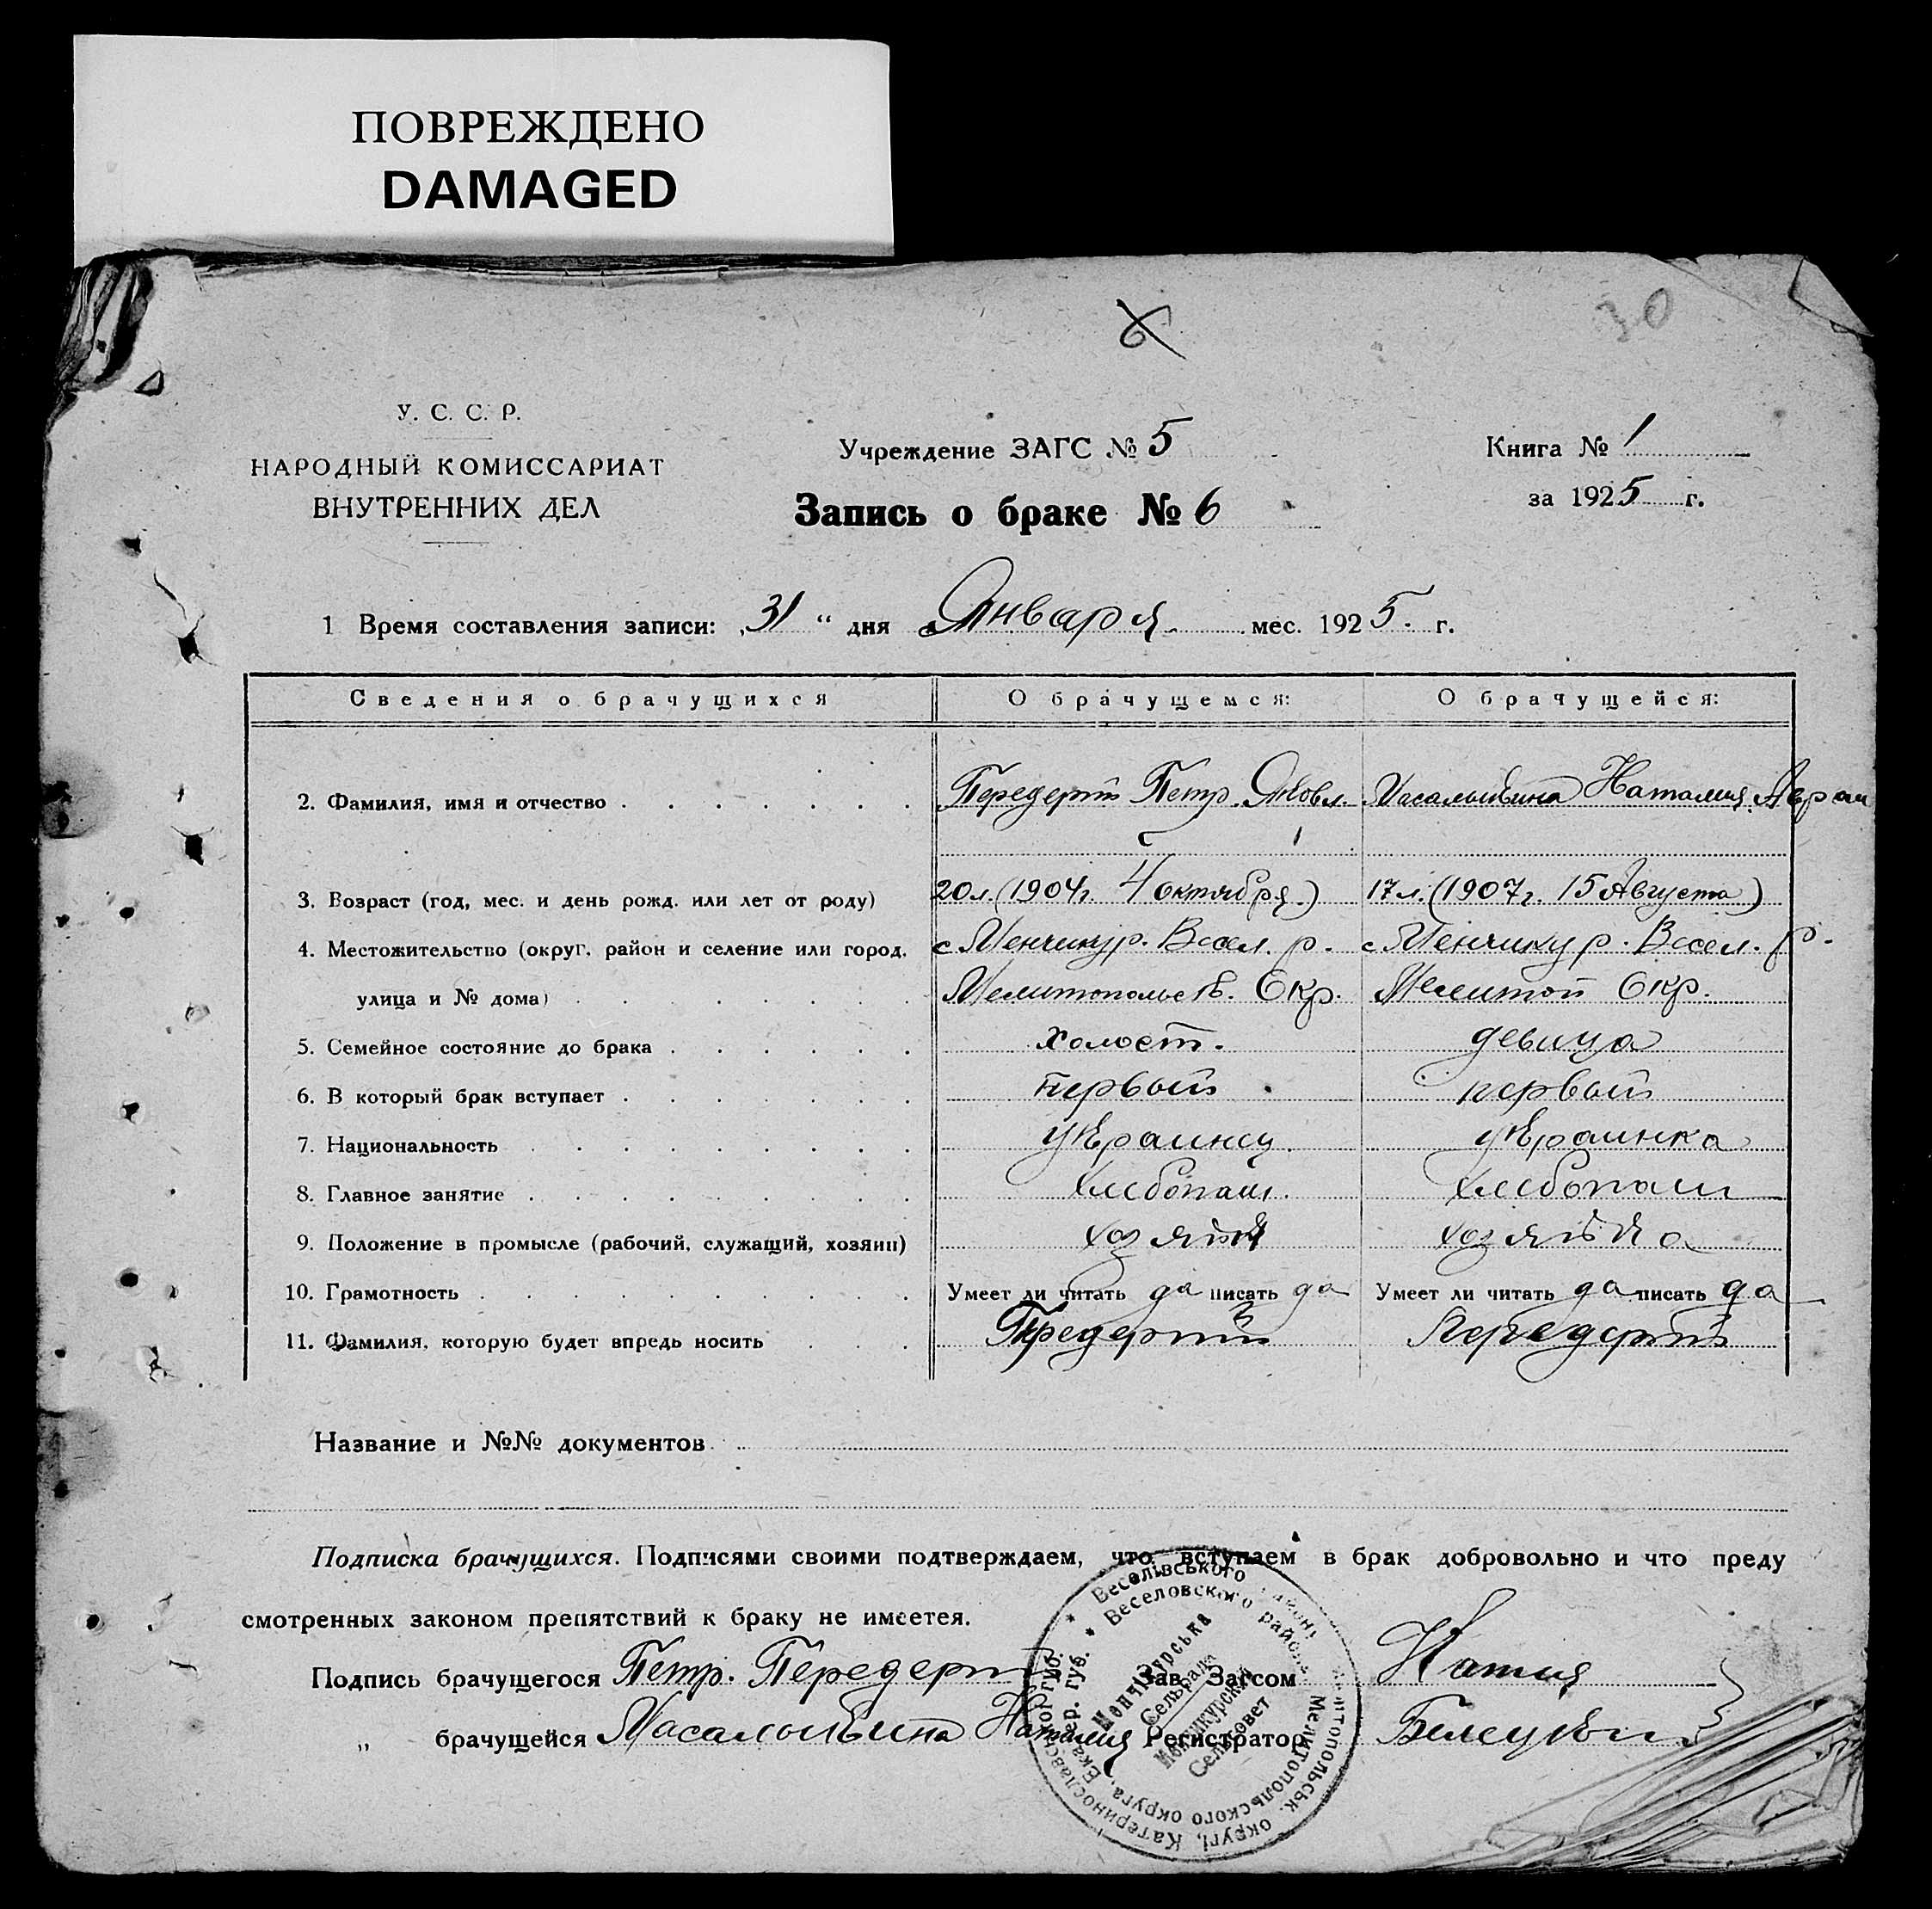 ПОВРЕЖДЕНО
DAMAGED
6
30
У. С. С. Р.
НАРОДНЫЙ КОМИССАРИАТ
ВНУТРЕННИХ ДЕЛ
Учреждение ЗАГС № 5
Запись о браке № 6
Книга № 1
за 1925 г.
1 Время составления записи: „31 “ дня Января мес. 1925. г.
Сведения о брачущихся О брачущемся: О брачущейся:
2. Фамилия, имя и отчество Передерий Петр Яковл. Масалыкина Наталия Аврам
3. Возраст (год, мес. и день рожд. или лет от роду) 20 л. (1904 г. 4 октября) 17 л. (1907 г. 15 Августа)
4. Местожительство (округ, район и селение или город, с Менчикур. Весел. р. с Менчикур. Весел. р.
улица и № дома) Мелитопольск. Окр. Мелитоп Окр.
5. Семейное состояние до брака холост. девица
6. В который брак вступает первый первый
7. Национальность украинец украинка
8. Главное занятие хлебопаш. хлебопаш
9. Положение в промысле (рабочий, служащий, хозяин) хозяин хозяйка
10. Грамотность Умеет ли читать да писать да Умеет ли читать да писать да
11. Фамилия, которую будет впредь носить Передерий Передерий
Название и №№ документов
Подписка брачущихся. Подписями своими подтверждаем, что вступаем в брак добровольно и что преду
смотренных законом препятствий к браку не имеется.
Подпись брачущегося Петр. Передерий Зав. Загсом
„ брачущейся Масалыкина Наталия Регистратор
Веселівського району Мелітопольськ. округі, Катеринославської губ.
Веселовского района Мелитопольского округа, Екатер. губ.
Менчікурська
Сельрада
Менчикурский
Сельсовет